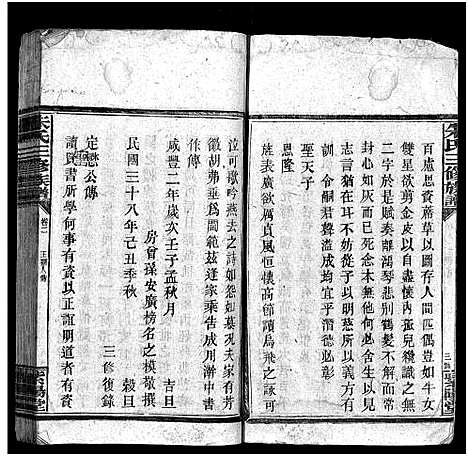 朱氏三修族譜
百慮思資蔣草以圖存人間匹偶豈如牛女
雙星欲剪金皮以自盡懷內孤兒纔識之無
二字於是賦奏離鴻琴悲別鶴髮不工而
狀已枯灰面已死念木無他何必舍生以具
酒古人有耳不妨從子以明慈所以教
也猶且
令嗣君聲造成均宜平潛德必彰
聖天子
恩隆
旌表廣欲厲貞風恒懷高節讀烏飛之詠可
泣可
吟燕去之詩如怨如慕況夫家有芳
徽胡弗垂爲閨範茲逢家乘告成用濡中書
作傳
咸豐二年歲次壬子孟秋月 吉旦
房曾孫安廣榜名之模敬撰
民國三十八年己丑季秋 穀旦
三修復錄
定懋公傳
讀賢書所學何事有資以正誼明道者有資
朱氏三修族譜
卷二